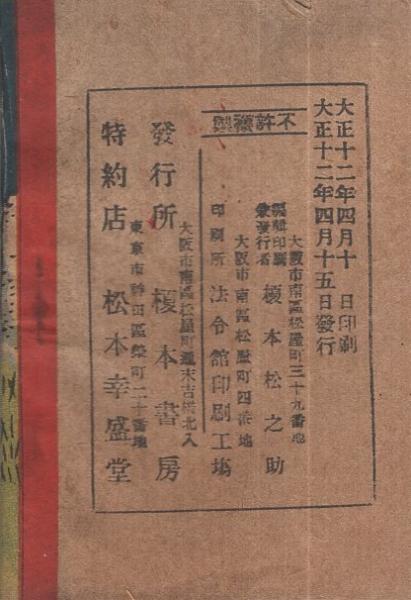 大正十二年四月十 日印刷
大正十二年四月十五日發行
不許複製
大阪市南區松屋町三十九番地
編輯印刷
兼發行者 榎本松之助
大阪市南區松屋町四番地
印刷所 法令館印刷工場
大阪市南區松屋町通末吉橋北入
發行所 榎本書房
東京市神田區 町二十番地
特約店 松本幸盛堂